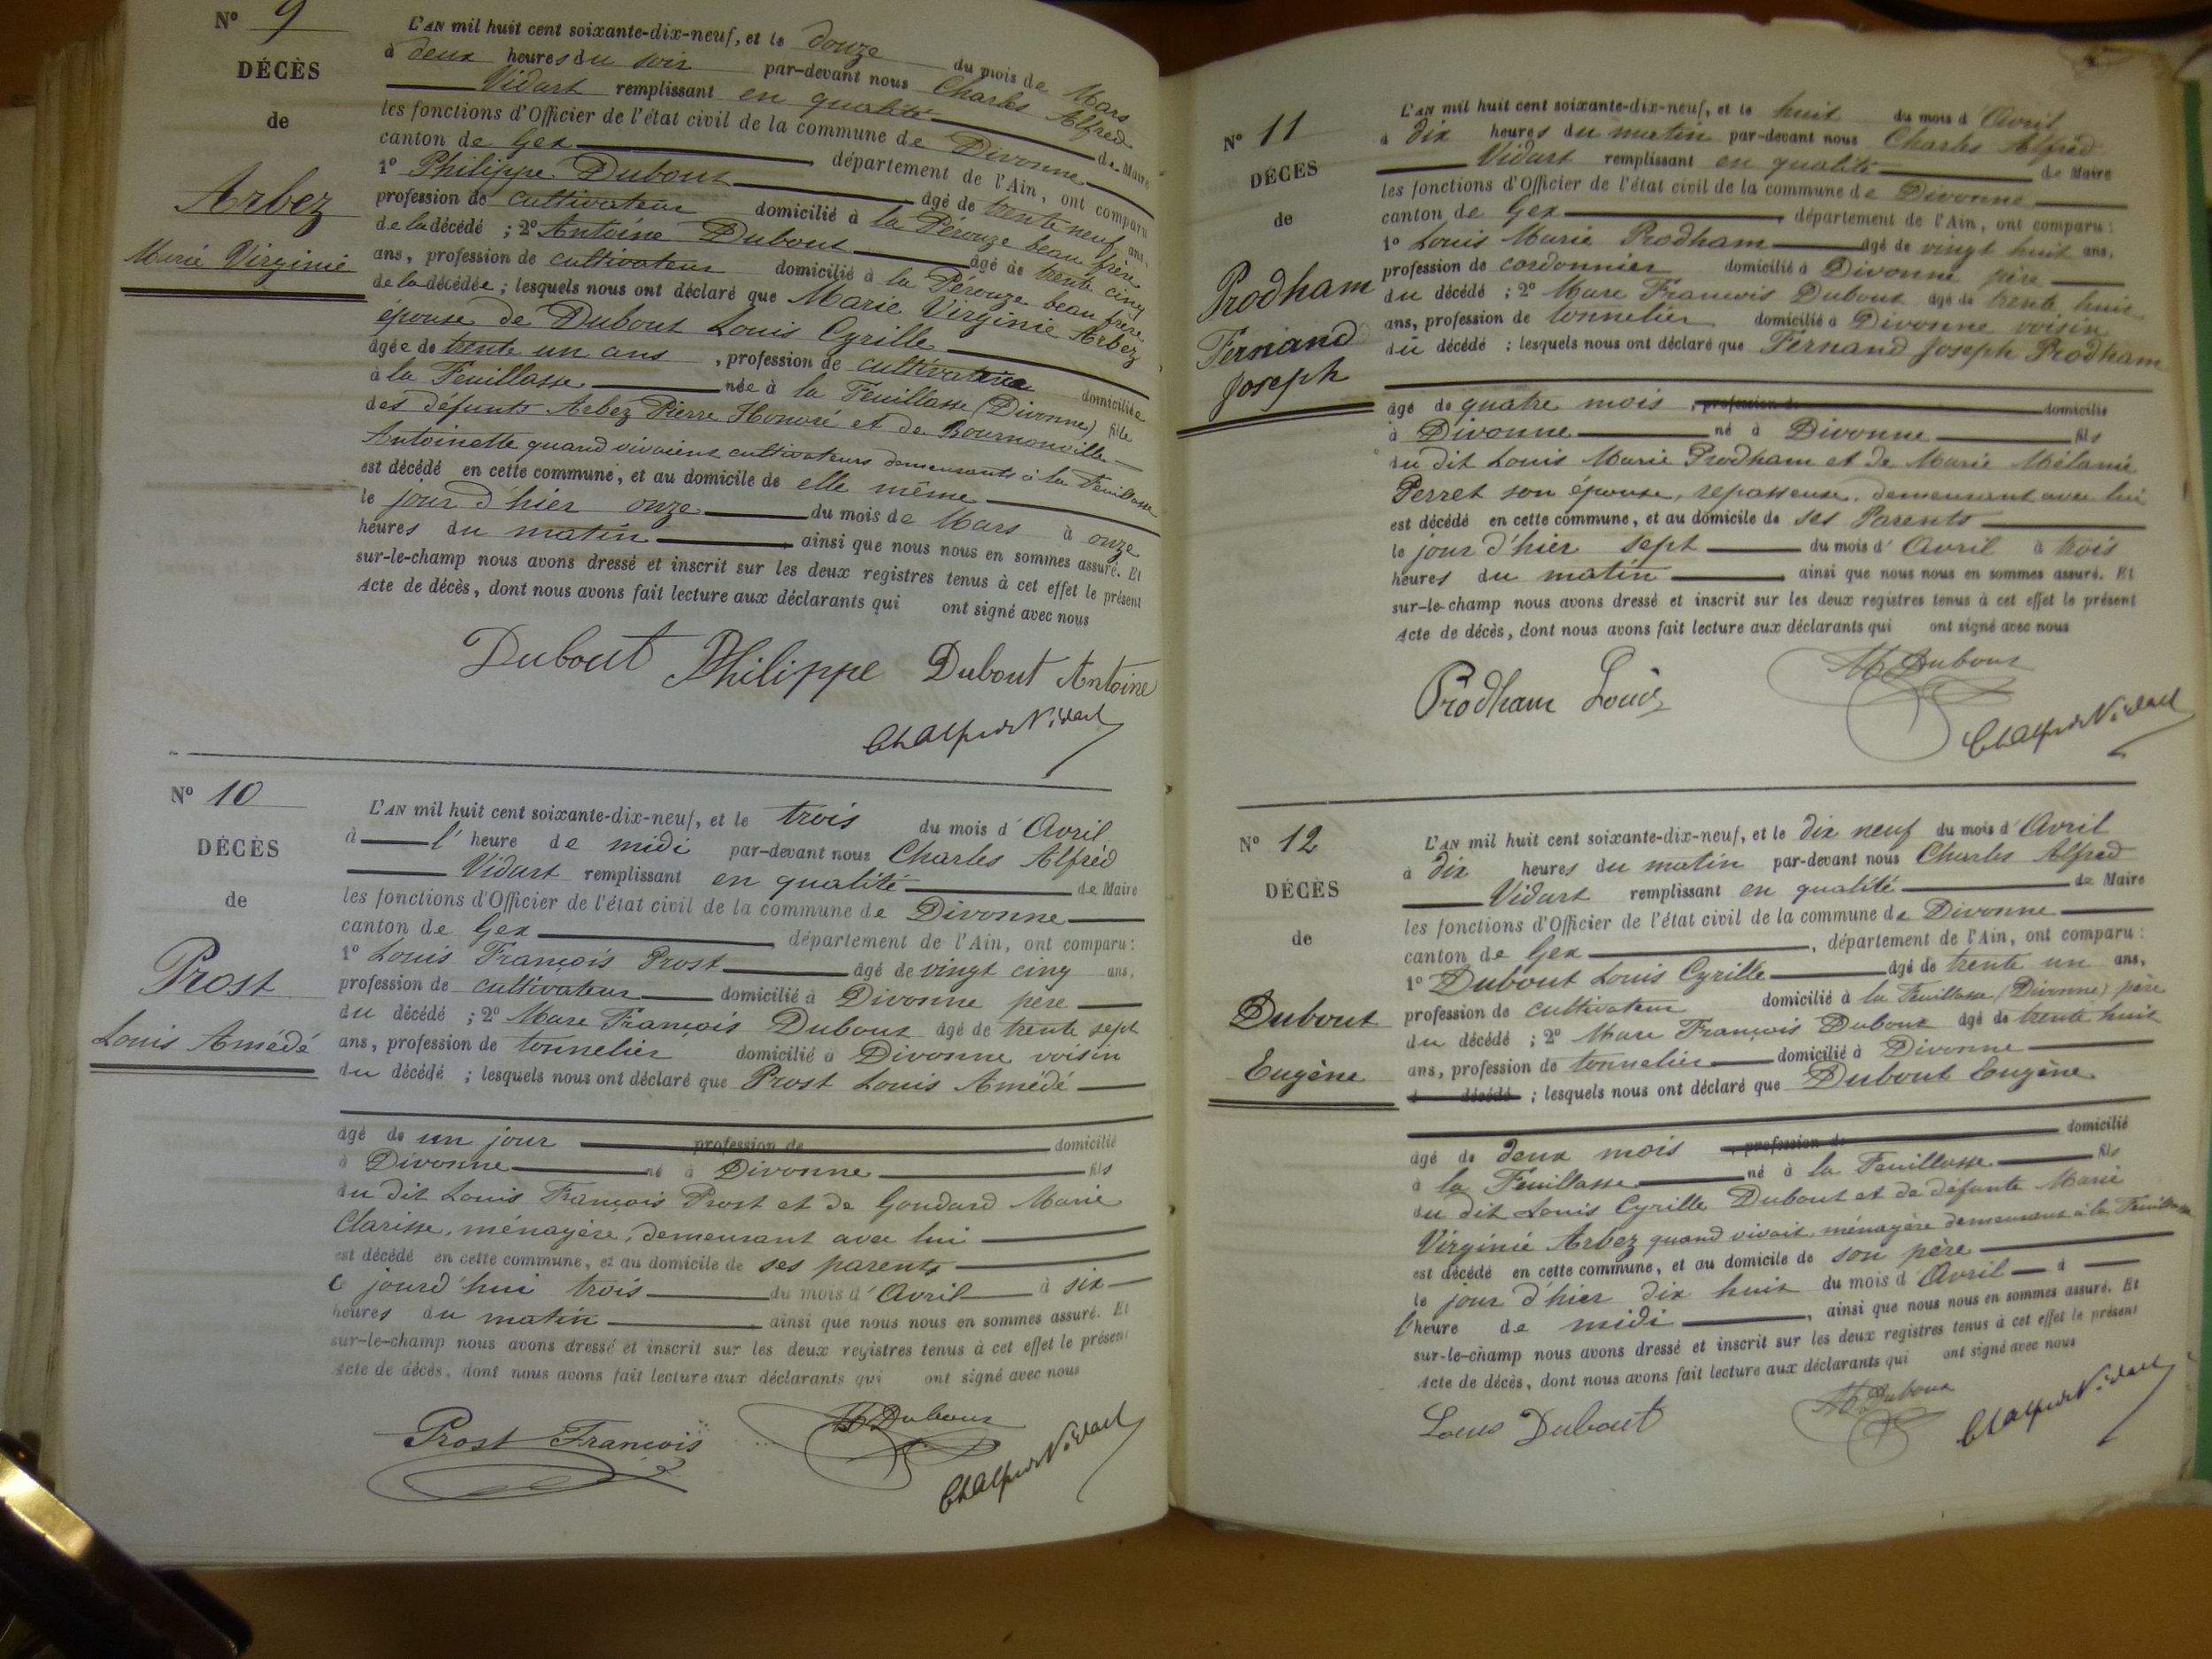 N° 9
DÉCÈS
de
Arbez
Marie Virginie
L'AN mil huit cent soixante-dix-neuf, et le douze du mois de Mars
à deux heures du soir par-devant nous Charles Alfred
Vidart remplissant en qualité de Maire
les fonctions d'Officier de l'état civil de la commune de Divonne
canton de Gex, département de l'Ain, ont comparu
1° Philippe Dubout âgé de trente neuf ans,
profession de cultivateur domicilié à la Pérouze beau frère
de la décédé ; 2° Antoine Dubout âgé de trente cinq
ans, profession de cultivateur domicilié à la Pérouze beau frère
de la décédée ; lesquels nous ont déclaré que Marie Virginie Arbez
épouse de Dubout Louis Cyrille
âgée de trente un ans, profession de cultivatrice domiciliée
à la Feuillasse née à la Feuillasse (Divonne) fille
des défunts Arbez Pierre Honoré et de Bournonville
Antoinette quand vivaient cultivateurs demeurants à la Feuillasse
est décédé en cette commune, et au domicile de elle même
le jour d'hier onze du mois de Mars à onze
heures du matin ainsi que nous nous en sommes assuré. Et
sur-le-champ nous avons dressé et inscrit sur les deux registres tenus à cet effet le présent
Acte de décès, dont nous avons fait lecture aux déclarants qui ont signé avec nous
Dubout Philippe Dubout Antoine
Ch Alfred Vidart
N° 10
DÉCÈS
de
Prost
Louis Amédé
L'AN mil huit cent soixante-dix-neuf, et le trois du mois d'Avril
à l'heure de midi par-devant nous Charles Alfred
Vidart remplissant en qualité de Maire
les fonctions d'Officier de l'état civil de la commune de Divonne
canton de Gex département de l'Ain, ont comparu :
1° Louis François Prost âgé de vingt cinq ans,
profession de cultivateur domicilié à Divonne père
du décédé ; 2° Marc François Dubout âgé de trente sept
ans, profession de tonnelier domicilié à Divonne voisin
du décédé ; lesquels nous ont déclaré que Prost Louis Amédé
âgé de un jour profession de domicilié
à Divonne né à Divonne fils
du dit Louis François Prost et de Goudard Marie
Clarisse, ménagère, demeurant avec lui
est décédé en cette commune, et au domicile de ses parents
ce jourd'hui trois du mois d'Avril à six
heures du matin ainsi que nous nous en sommes assuré. Et
sur-le-champ nous avons dressé et inscrit sur les deux registres tenus à cet effet le présent
Acte de décès, dont nous avons fait lecture aux déclarants qui ont signé avec nous
Prost François Dubout
Ch Alfred Vidart
N° 11
DÉCÈS
de
Prodham
Fernand
Joseph
L'AN mil huit cent soixante-dix-neuf, et le huit du mois d'Avril
à dix heures du matin par-devant nous Charles Alfred
Vidart remplissant en qualité de Maire
les fonctions d'Officier de l'état civil de la commune de Divonne
canton de Gex, département de l'Ain, ont comparu :
1° Louis Marie Prodham âgé de vingt huit ans,
profession de cordonnier domicilié à Divonne père
du décédé ; 2° Marc François Dubout âgé de trente huit
ans, profession de tonnelier domicilié à Divonne voisin
du décédé ; lesquels nous ont déclaré que Fernand Joseph Prodham
âgé de quatre mois, profession de domicilié
à Divonne né à Divonne fils
du dit Louis Marie Prodham et de Marie Mélanie
Perret son épouse, repasseuse, demeurant avec lui
est décédé en cette commune, et au domicile de ses Parents
le jour d'hier sept du mois d'Avril à trois
heures du matin ainsi que nous nous en sommes assuré. Et
sur-le-champ nous avons dressé et inscrit sur les deux registres tenus à cet effet le présent
Acte de décès, dont nous avons fait lecture aux déclarants qui ont signé avec nous
Prodham Louis Dubout
Ch Alfred Vidart
N° 12
DÉCÈS
de
Dubout
Eugène
L'AN mil huit cent soixante-dix-neuf, et le dix neuf du mois d'Avril
à dix heures du matin par-devant nous Charles Alfred
Vidart remplissant en qualité de Maire
les fonctions d'Officier de l'état civil de la commune de Divonne
canton de Gex, département de l'Ain, ont comparu :
1° Dubout Louis Cyrille âgé de trente un ans,
profession de cultivateur domicilié à la Feuillasse (Divonne) père
du décédé ; 2° Marc François Dubout âgé de trente huit
ans, profession de tonnelier domicilié à Divonne
d décédé ; lesquels nous ont déclaré que Dubout Eugène
âgé de deux mois, profession de domicilié
à la Feuillasse né à la Feuillasse fils
du dit Louis Cyrille Dubout et de défunte Marie
Virginie Arbez quand vivait ménagère demeurant à la Feuillasse
est décédé en cette commune, et au domicile de son père
le jour d'hier dix huit du mois d'Avril à
l'heure de midi, ainsi que nous nous en sommes assuré. Et
sur-le-champ nous avons dressé et inscrit sur les deux registres tenus à cet effet le présent
Acte de décès, dont nous avons fait lecture aux déclarants qui ont signé avec nous
Louis Dubout Dubout
Ch Alfred Vidart